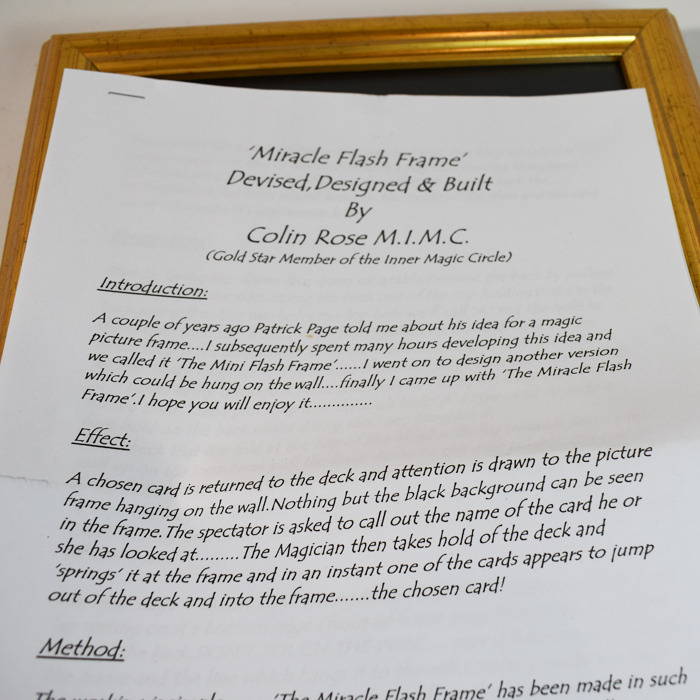 'Miracle Flash Frame'
Devised,Designed & Built
By
Colin Rose M.I.M.C.
(Gold Star Member of the Inner Magic Circle)
Introduction:
A couple of years ago Patrick Page told me about his idea for a magic
picture frame....I subsequently spent many hours developing this idea and
we called it 'The Mini Flash Frame'......I went on to design another version
which could be hung on the wall....finally I came up with 'The Miracle Flash
Frame'.I hope you will enjoy it.............
Effect:
A chosen card is returned to the deck and attention is drawn to the picture
frame hanging on the wall.Nothing but the black background can be seen
in the frame.The spectator is asked to call out the name of the card he or
she has looked at........The Magician then takes hold of the deck and
'springs' it at the frame and in an instant one of the cards appears to jump
out of the deck and into the frame.......the chosen card!
Method:
'The Miracle Flash Frame' has been made in such